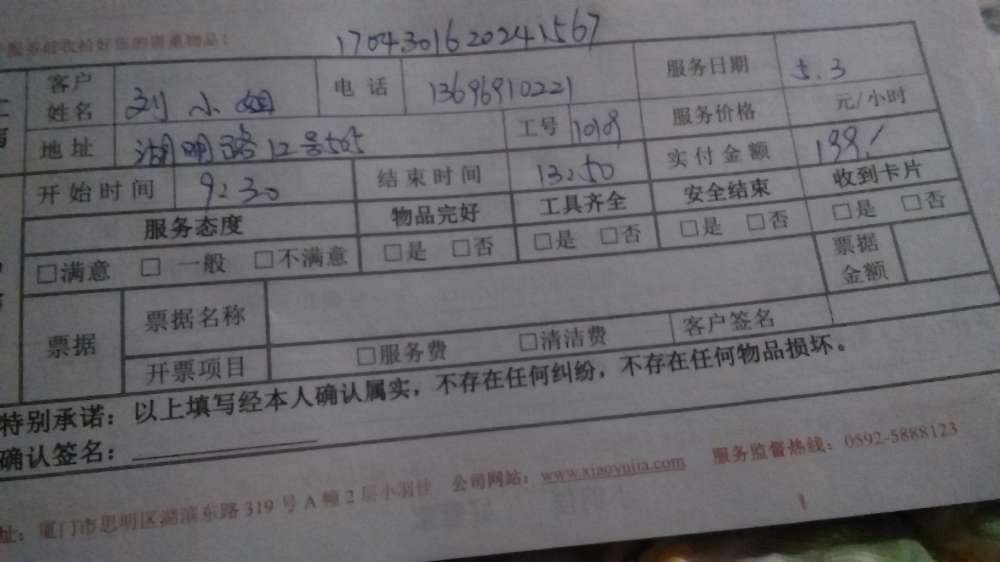 服务前收拾好您的贵重物品！
1704301620241567
客户姓名 刘小姐 电话 13696910221 服务日期 5.3
地址 湖明路12号505 工号 1019 服务价格 元/小时
开始时间 9:30 结束时间 13:50 实付金额 199/
服务态度 物品完好 工具齐全 安全结束 收到卡片
□满意 □一般 □不满意 □是 □否 □是 □否 □是 □否 □是 □否
票据 票据名称 票据金额
开票项目 □服务费 □清洁费 客户签名
特别承诺：以上填写经本人确认属实，不存在任何纠纷，不存在任何物品损坏。
确认签名：
址：厦门市思明区湖滨东路319号A幢2层小羽佳 公司网站：www.xiaoyujia.com 服务监督热线：0592-5888123